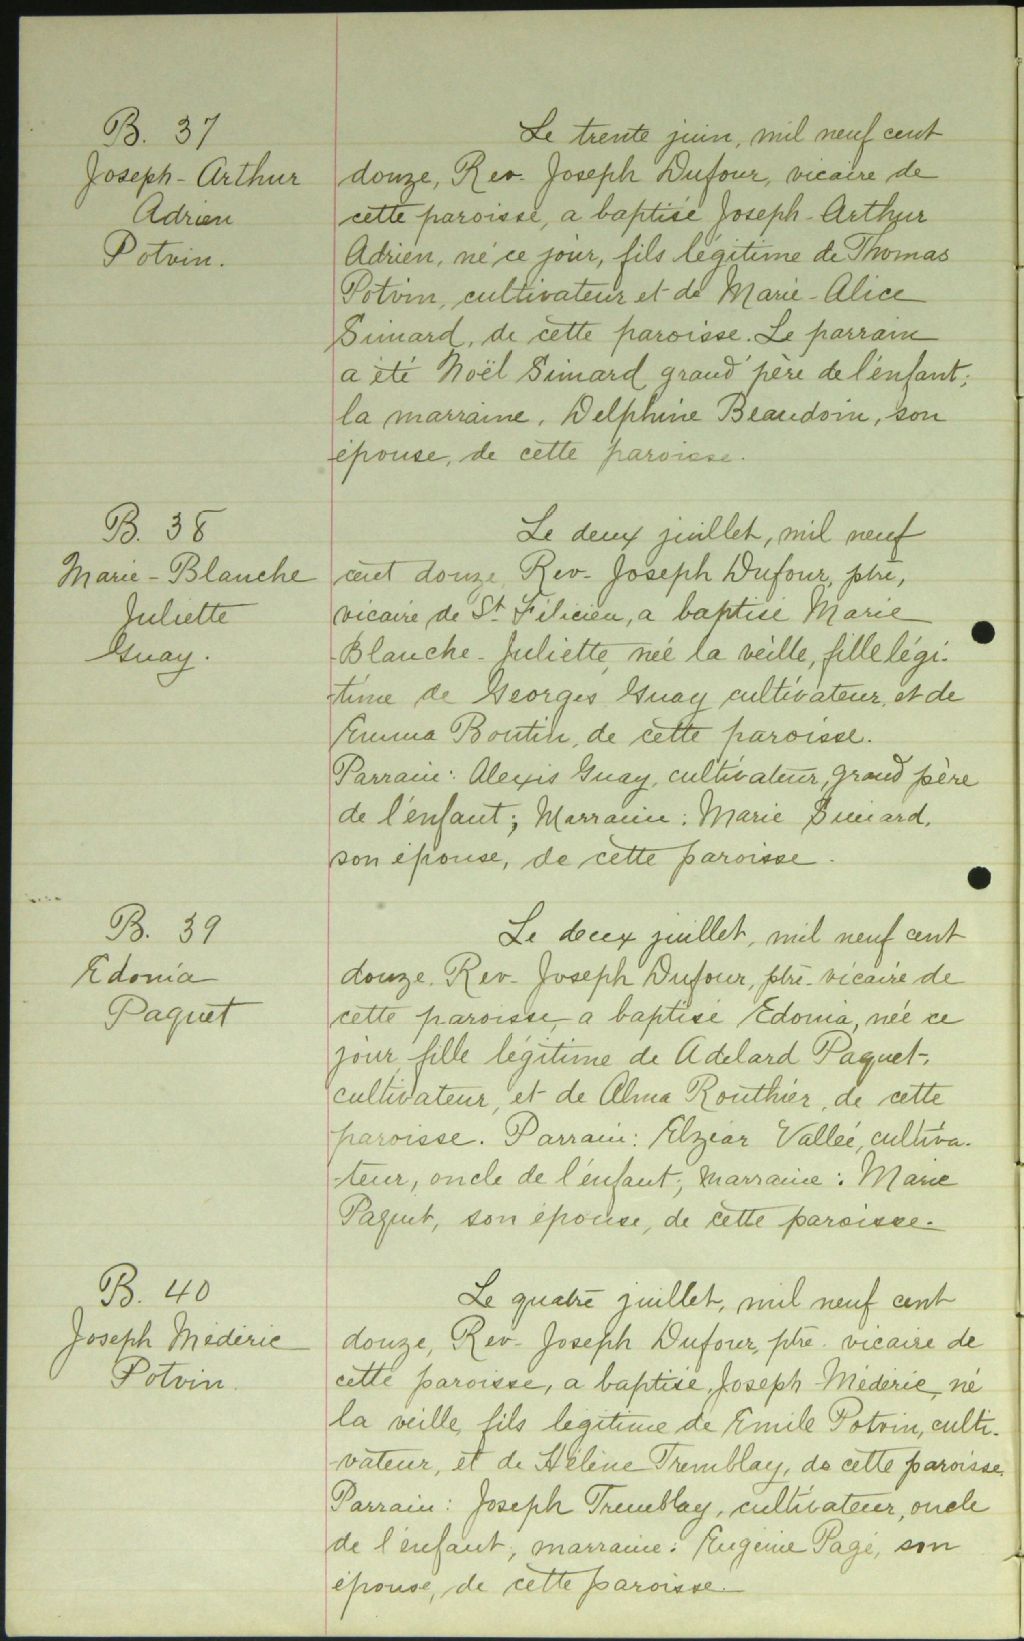 B. 37
Joseph-Arthur
Adrien
Potvin.
Le trente juin, mil neuf cent
douze, Rev. Joseph Dufour, vicaire de
cette paroisse, a baptisé Joseph-Arthur
Adrien, né ce jour, fils légitime de Thomas
Potvin, cultivateur et de Marie-Alice
Simard, de cette paroisse. Le parrain
a été Noël Simard grand'père de l'enfant;
la marraine, Delphine Beaudoin, son
épouse, de cette paroisse.
B. 38
Marie-Blanche
Juliette
Guay.
Le deux juillet, mil neuf
cent douze, Rev. Joseph Dufour, ptre,
vicaire de St. Félicien, a baptisé Marie
Blanche-Juliette, née la veille, fille légi-
-time de Georges Guay cultivateur, et de
Emma Boutin, de cette paroisse.
Parrain: Alexis Guay, cultivateur, grand père
de l'enfant; Marraine: Marie Simard,
son épouse, de cette paroisse.
B. 39
Edonia
Paquet
Le deux juillet, mil neuf cent
douze, Rev. Joseph Dufour, ptre. vicaire de
cette paroisse, a baptisé Edonia, née ce
jour, fille légitime de Adelard Paquet,
cultivateur, et de Alma Routhier, de cette
paroisse. Parrain: Elzéar Vallée, cultiva-
-teur, oncle de l'enfant; marraine: Marie
Paquet, son épouse, de cette paroisse.
B. 40
Joseph Médéric
Potvin.
Le quatre juillet, mil neuf cent
douze, Rev. Joseph Dufour, ptre. vicaire de
cette paroisse, a baptisé, Joseph-Médéric, né
la veille, fils légitime de Emile Potvin, culti-
-vateur, et de Hélène Tremblay, de cette paroisse.
Parrain: Joseph Tremblay, cultivateur, oncle
de l'enfant, marraine: Eugénie Pagé, son
épouse, de cette paroisse.